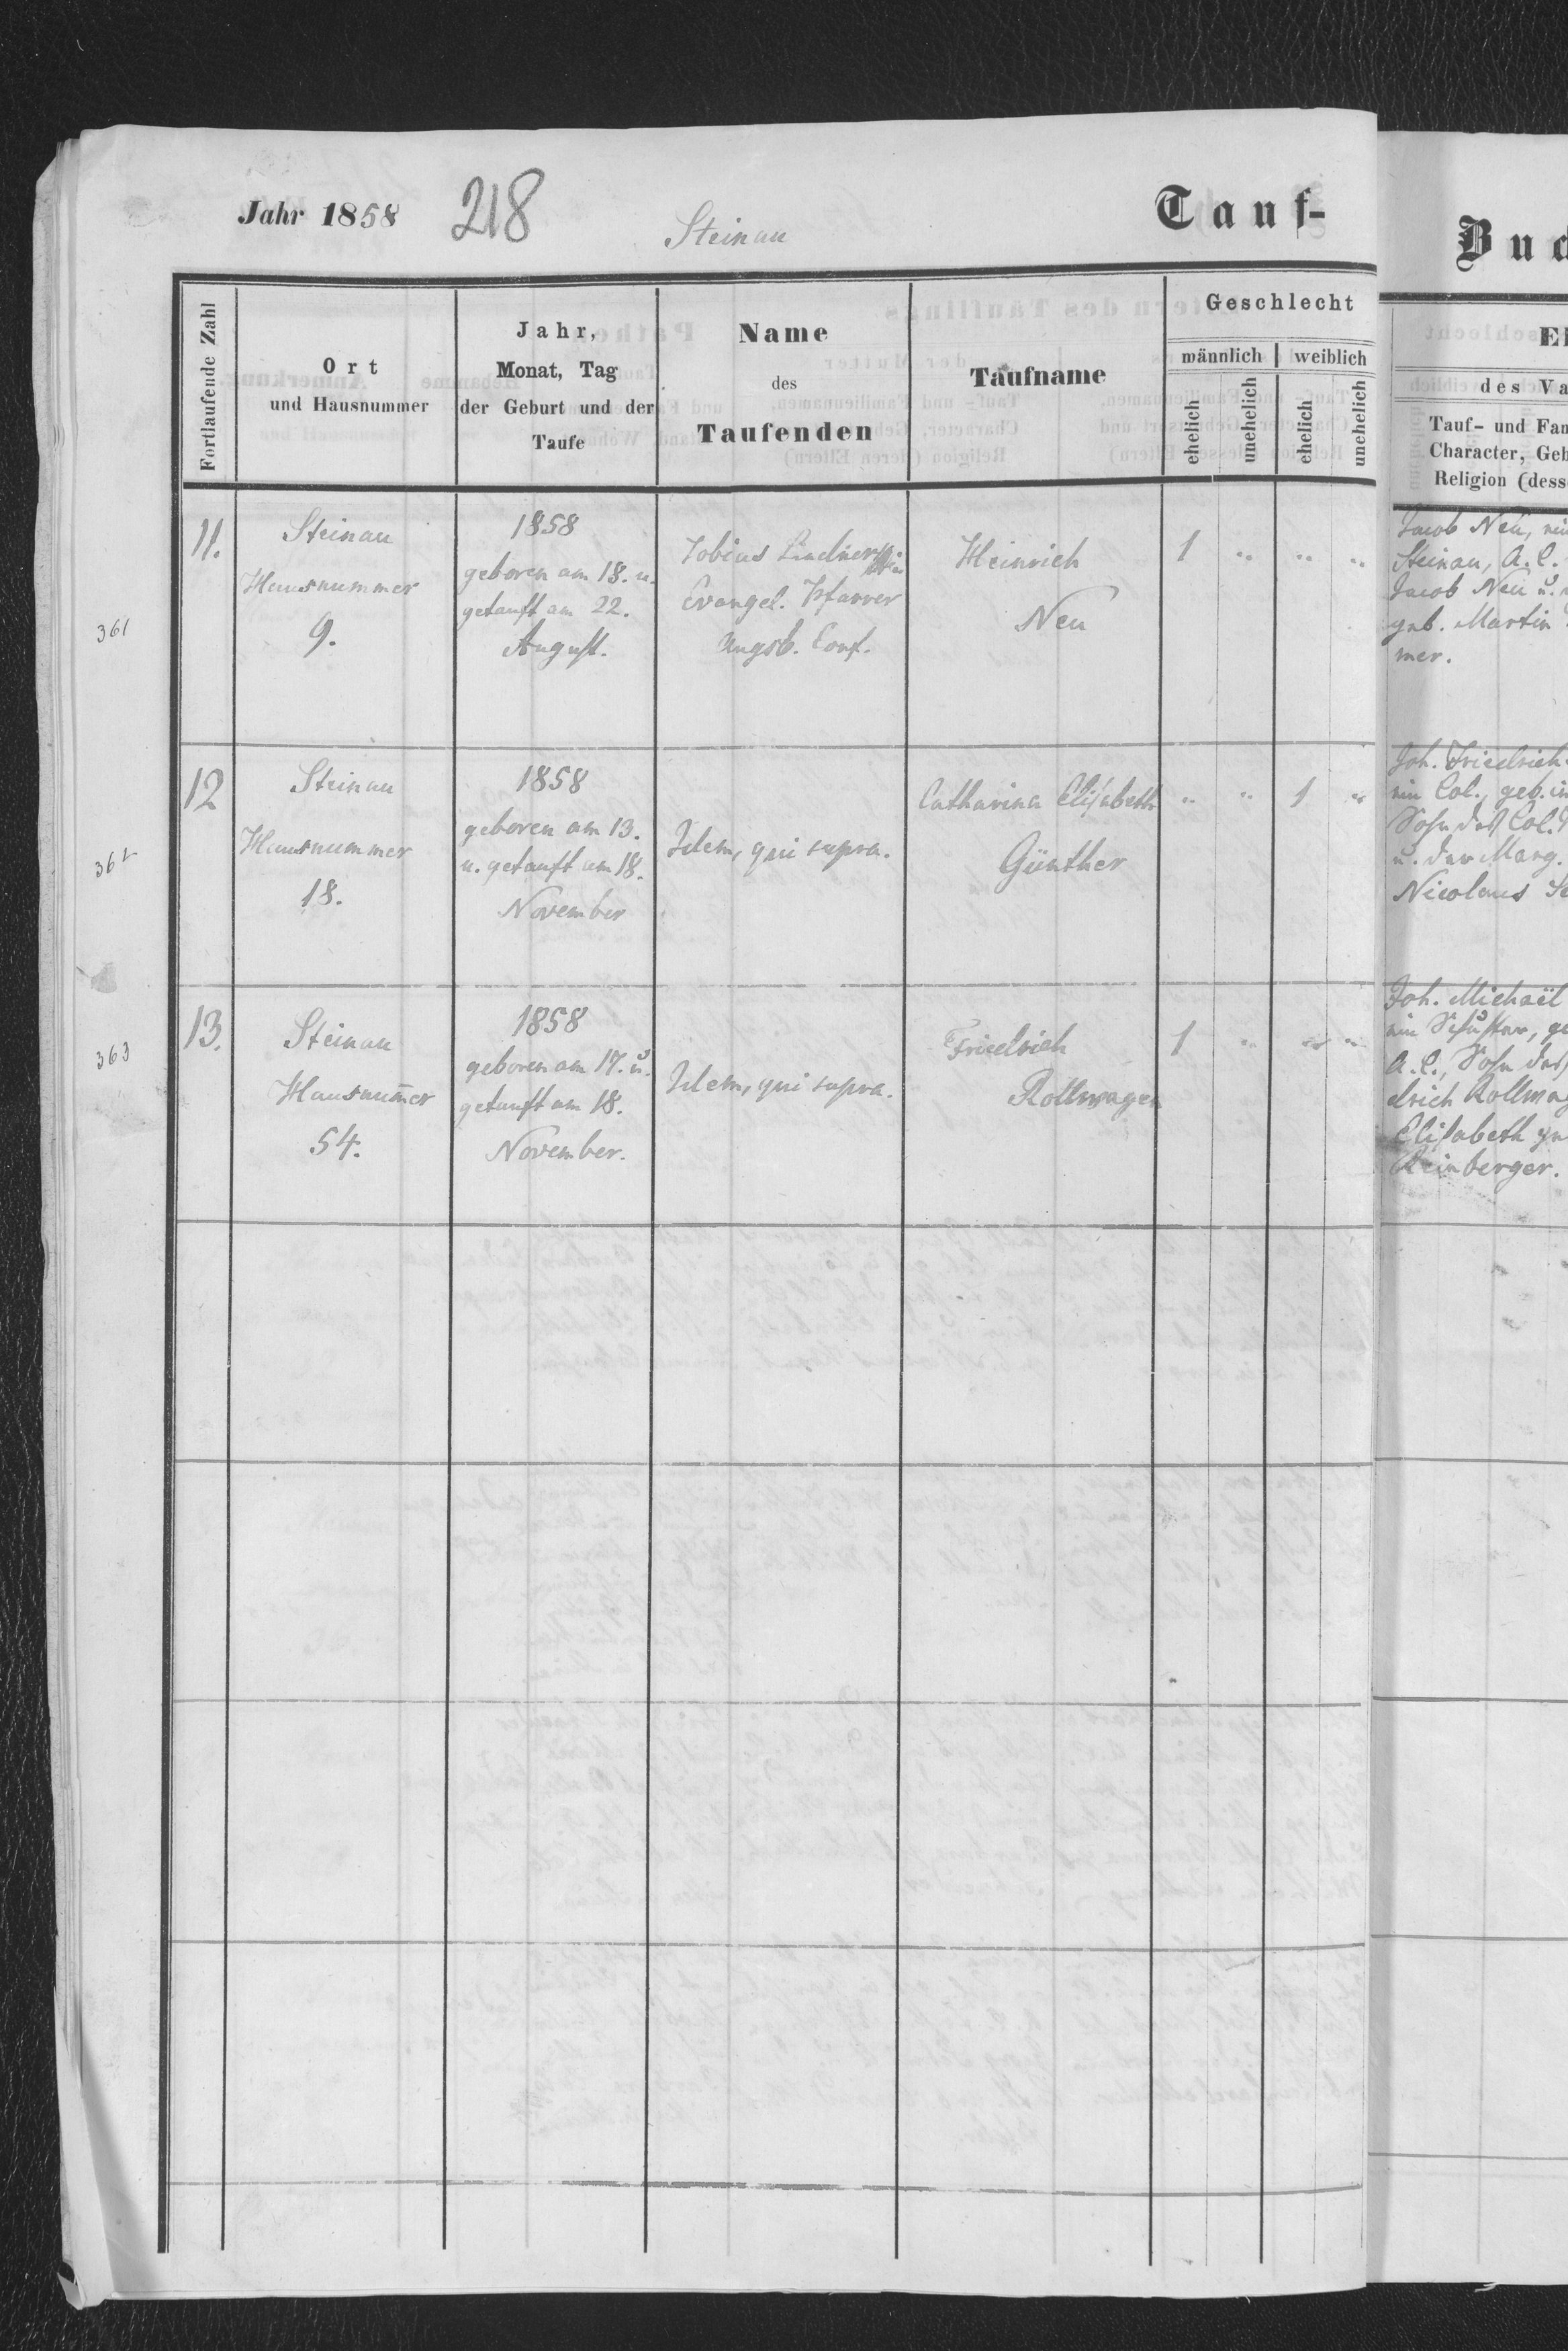 Jahr 1858
218
Steinau
Tauf-
Fortlaufende Zahl
Ort
und Hausnummer
Jahr,
Monat, Tag
der Geburt und der
Taufe
Name
des
Taufenden
Taufname
Geschlecht
männlich
weiblich
ehelich
unehelich
ehelich
unehelich
361
11.
Steinau
Hausnummer
9.
1858
geboren am 18. u.
getauft am 22.
August.
Tobias Lindner
Evangel. Pfarrer
Augsb. Conf.
Heinrich
Neu
1 " " "
362
12
Steinau
Hausnummer
18.
1858
geboren am 13.
u. getauft am 18.
November
Idem, qui supra.
Catharina Elisabeth
Günther
" " 1 "
363
13.
Steinau
Hausnum̄er
54.
1858
geboren am 17. u.
getauft am 18.
November.
Idem, qui supra.
Friedrich
Rollwagen
1 " " "
Buc
El
des Va
Tauf- und Fam
Character, Geb
Religion (dess
Jacob Neu, ein
Steinau, A. C.
Jacob Neu u.
geb. Martin
mer.
Joh. Friedrich
ein Col., geb. in
Sohn des Col.
u. der Marg.
Nicolaus Sc
Joh. Michaël
ein Schuster, ge
A. C., Sohn des
drich Rollwag
Elisabeth ge
Reinberger.